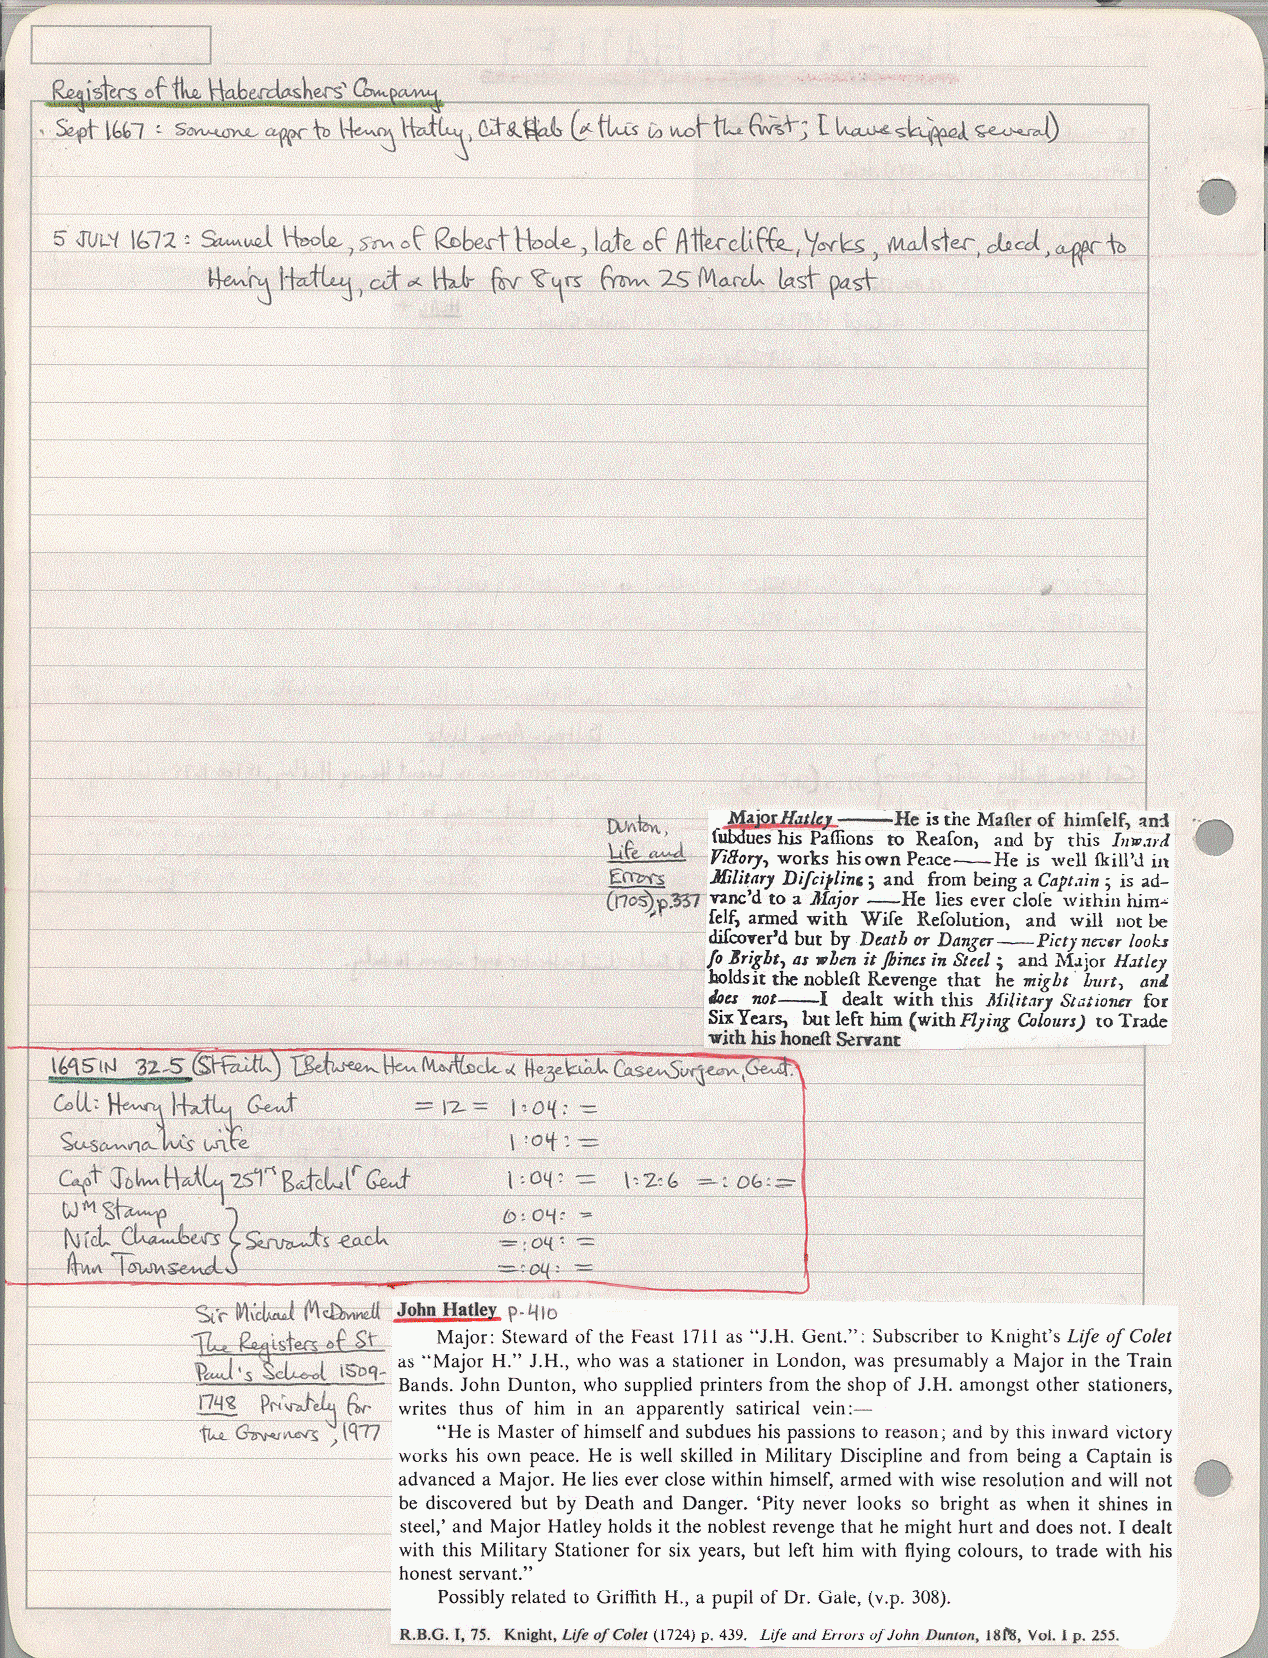 Registers of the Haberdashers' Company
Sept 1667 : Someone appr to Henry Hatley, Cit & Hab (& this is not the first; I have skipped several)
5 JULY 1672 : Samuel Hoole, son of Robert Hoole, late of Attercliffe, Yorks, Malster, decd, appr to
Henry Hatley, cit & Hab for 8 yrs from 25 March last past
Dunton,
Life and
Errors
(1705), p.337
Major Hatley ——He is the Maſter of himſelf, and
ſubdues his Paſſions to Reaſon, and by this Inward
Victory, works his own Peace——He is well ſkill'd in
Military Diſcipline; and from being a Captain; is ad-
vanc'd to a Major ——He lies ever cloſe within him-
ſelf, armed with Wiſe Reſolution, and will not be
diſcover'd but by Death or Danger——Piety never looks
ſo Bright, as when it ſhines in Steel; and Major Hatley
holds it the nobleſt Revenge that he might hurt, and
does not——I dealt with this Military Stationer for
Six Years, but left him (with Flying Colours) to Trade
with his honeſt Servant
1695 IN 32-5 (St Faith) [Between Hen Mortlock & Hezekiah Casen Surgeon, Gent.
Coll: Henry Hatly Gent = 12 = 1:04: =
Susanna his wife 1:04: =
Capt John Hatly 25yrs Batchelr Gent 1:04: = 1:2:6 =: 06: =
Wm Stamp 0:04: =
Nich Chambers } Servants each =:04: =
Ann Townsend =:04: =
Sir Michael McDonnell
The Registers of St
Paul's School 1509-
1748 Privately for
the Governors, 1977
John Hatley p-410
Major: Steward of the Feast 1711 as "J.H. Gent.": Subscriber to Knight's Life of Colet
as "Major H." J.H., who was a stationer in London, was presumably a Major in the Train
Bands. John Dunton, who supplied printers from the shop of J.H. amongst other stationers,
writes thus of him in an apparently satirical vein:—
"He is Master of himself and subdues his passions to reason; and by this inward victory
works his own peace. He is well skilled in Military Discipline and from being a Captain is
advanced a Major. He lies ever close within himself, armed with wise resolution and will not
be discovered but by Death and Danger. 'Pity never looks so bright as when it shines in
steel,' and Major Hatley holds it the noblest revenge that he might hurt and does not. I dealt
with this Military Stationer for six years, but left him with flying colours, to trade with his
honest servant."
Possibly related to Griffith H., a pupil of Dr. Gale, (v.p. 308).
R.B.G. I, 75. Knight, Life of Colet (1724) p. 439. Life and Errors of John Dunton, 1818, Vol. I p. 255.